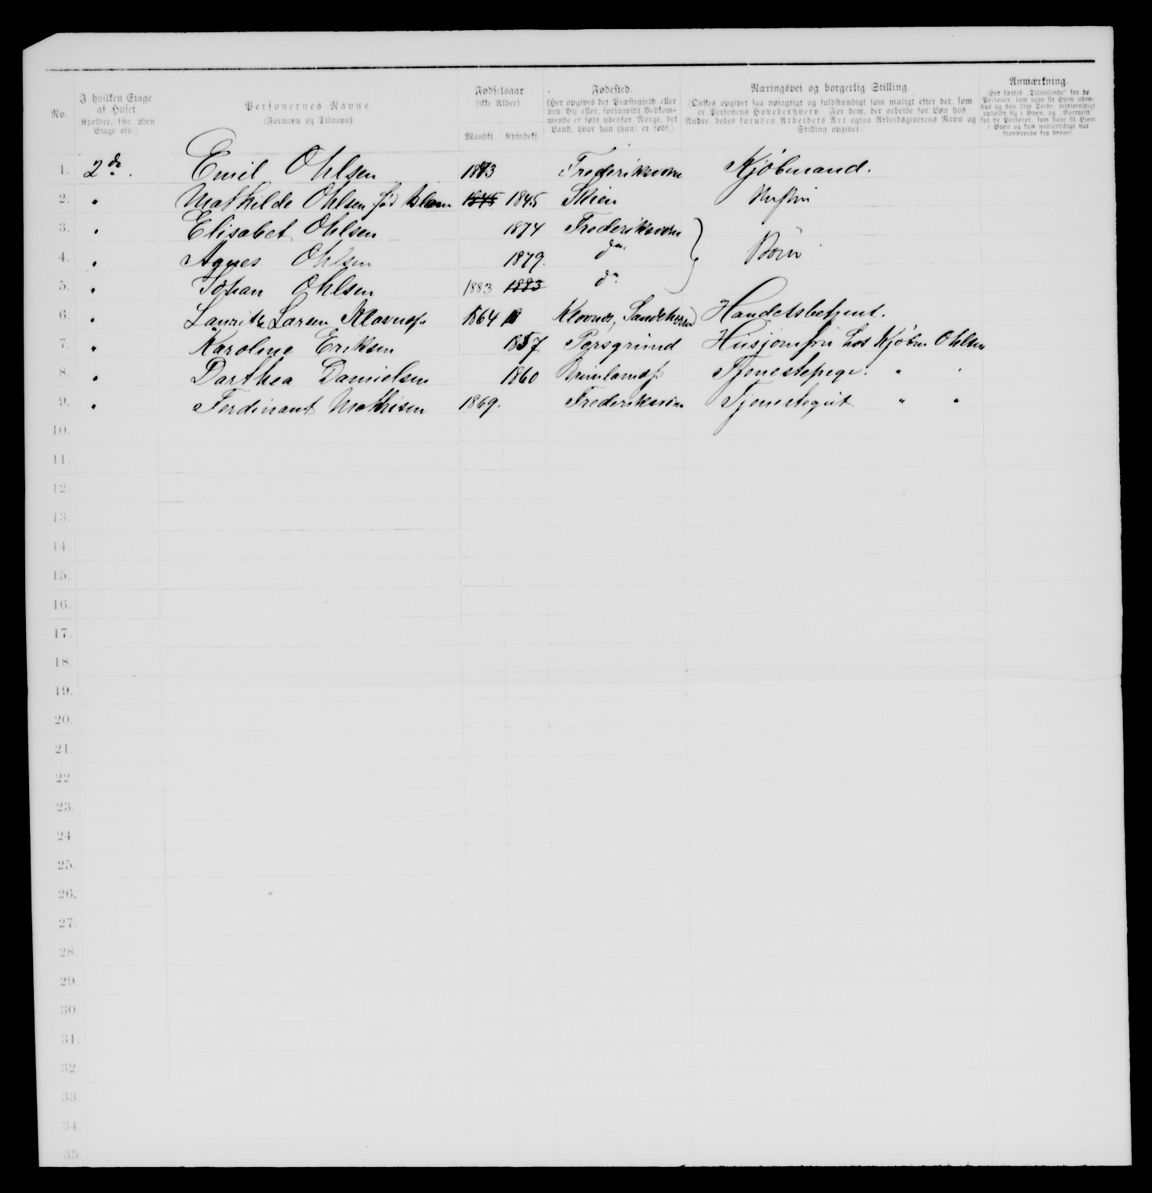 No.
I hvilken Etage
af Huset
(Kjelder, 1ste, 2den
Etage osv.)
Personernes Navne
(Fornavn og Tilnavn)
Fødselsaar
(ikke Alder)
Mandkj. Kvindekj.
Fødested.
(Her opgives det Præstegjeld eller
den By eller, forsaavidt Vedkom-
mende er født udenfor Norge, det
Land, hvor han (hun) er født.)
Næringsvei og borgerlig Stilling
(Ønskes opgivet saa nøiagtigt og fuldstændigt som muligt efter det, som
er Personens Hovederhverv. For dem, der arbeide for Løn hos
Andre, bedes foruden Arbeidets Art ogsaa Arbeidsgiverens Navn og
Stilling opgivet)
Anmærkning.
1. 2de. Emil Ohlsen 1843 Frederiksværn Kjøbmand.
2. " Mathilde Ohlsen født 1845 1845 Skien Husfru
3. " Elisabet Ohlsen 1874 Frederiksværn
4. " Agnes Ohlsen 1879. do Børn
5. " Johan Ohlsen 1883 1883 do
6. " Lauritz Larsen Klavnæs 1864 Klavnæs, Sandeherred Handelsbetjent.
7. " Karoline Eriksen 1857 Porsgrund Husjomfru hos Kjøbm. Ohlsen
8. " Darthea Danielsen 1860 Tjenestepige. " "
9. " Ferdinant Mathisen 1869. Frederiksværn Tjenestegut " "
10.
11.
12.
13.
14.
15.
16.
17.
18.
19.
20.
21.
22.
23.
24.
25.
26.
27.
28.
29.
30.
31.
32.
33.
34.
35